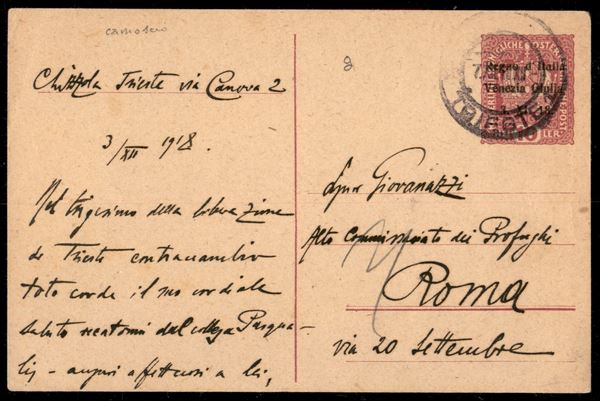 camoscio
Chizzola Trieste via Canova 2
3/XII 1918.
Nel trigesimo della liberazione
de Trieste contraccambio
toto corde il suo cordiale
saluto recatomi dal collega Pasqua-
lis - auguri affettuosi a lei,
2
Regno d'Italia
Venezia Giulia
TRIESTE
Giovanazzi
Alto Commissariato dei Profughi
Roma
via 20 Settembre